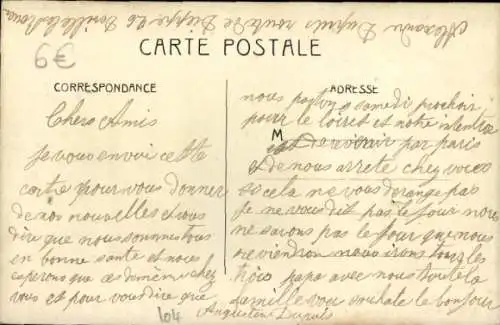 Alexandre Dupuis route de Dieppe les
6€
CARTE POSTALE
CORRESPONDANCE
Chers Amis
Je vous envoi cette
carte pour vous donner
de nos nouvelles et vous
dire que nous sommes tous
en bonne sante et nous
esperons que de meme chez
vous et pour vous dire que
ADRESSE
nous partons samedi prochain
pour le loiret et notre
M
par paris
et de nous arrete chez vous
si cela ne vous derange pas
Je ne vous dit pas le jour nous
ne savons pas le jour que nous
reviendron nous irons tous les
papa avec nous toute la
famille vous souhaite le bonjour
Augustin Dupuis
104